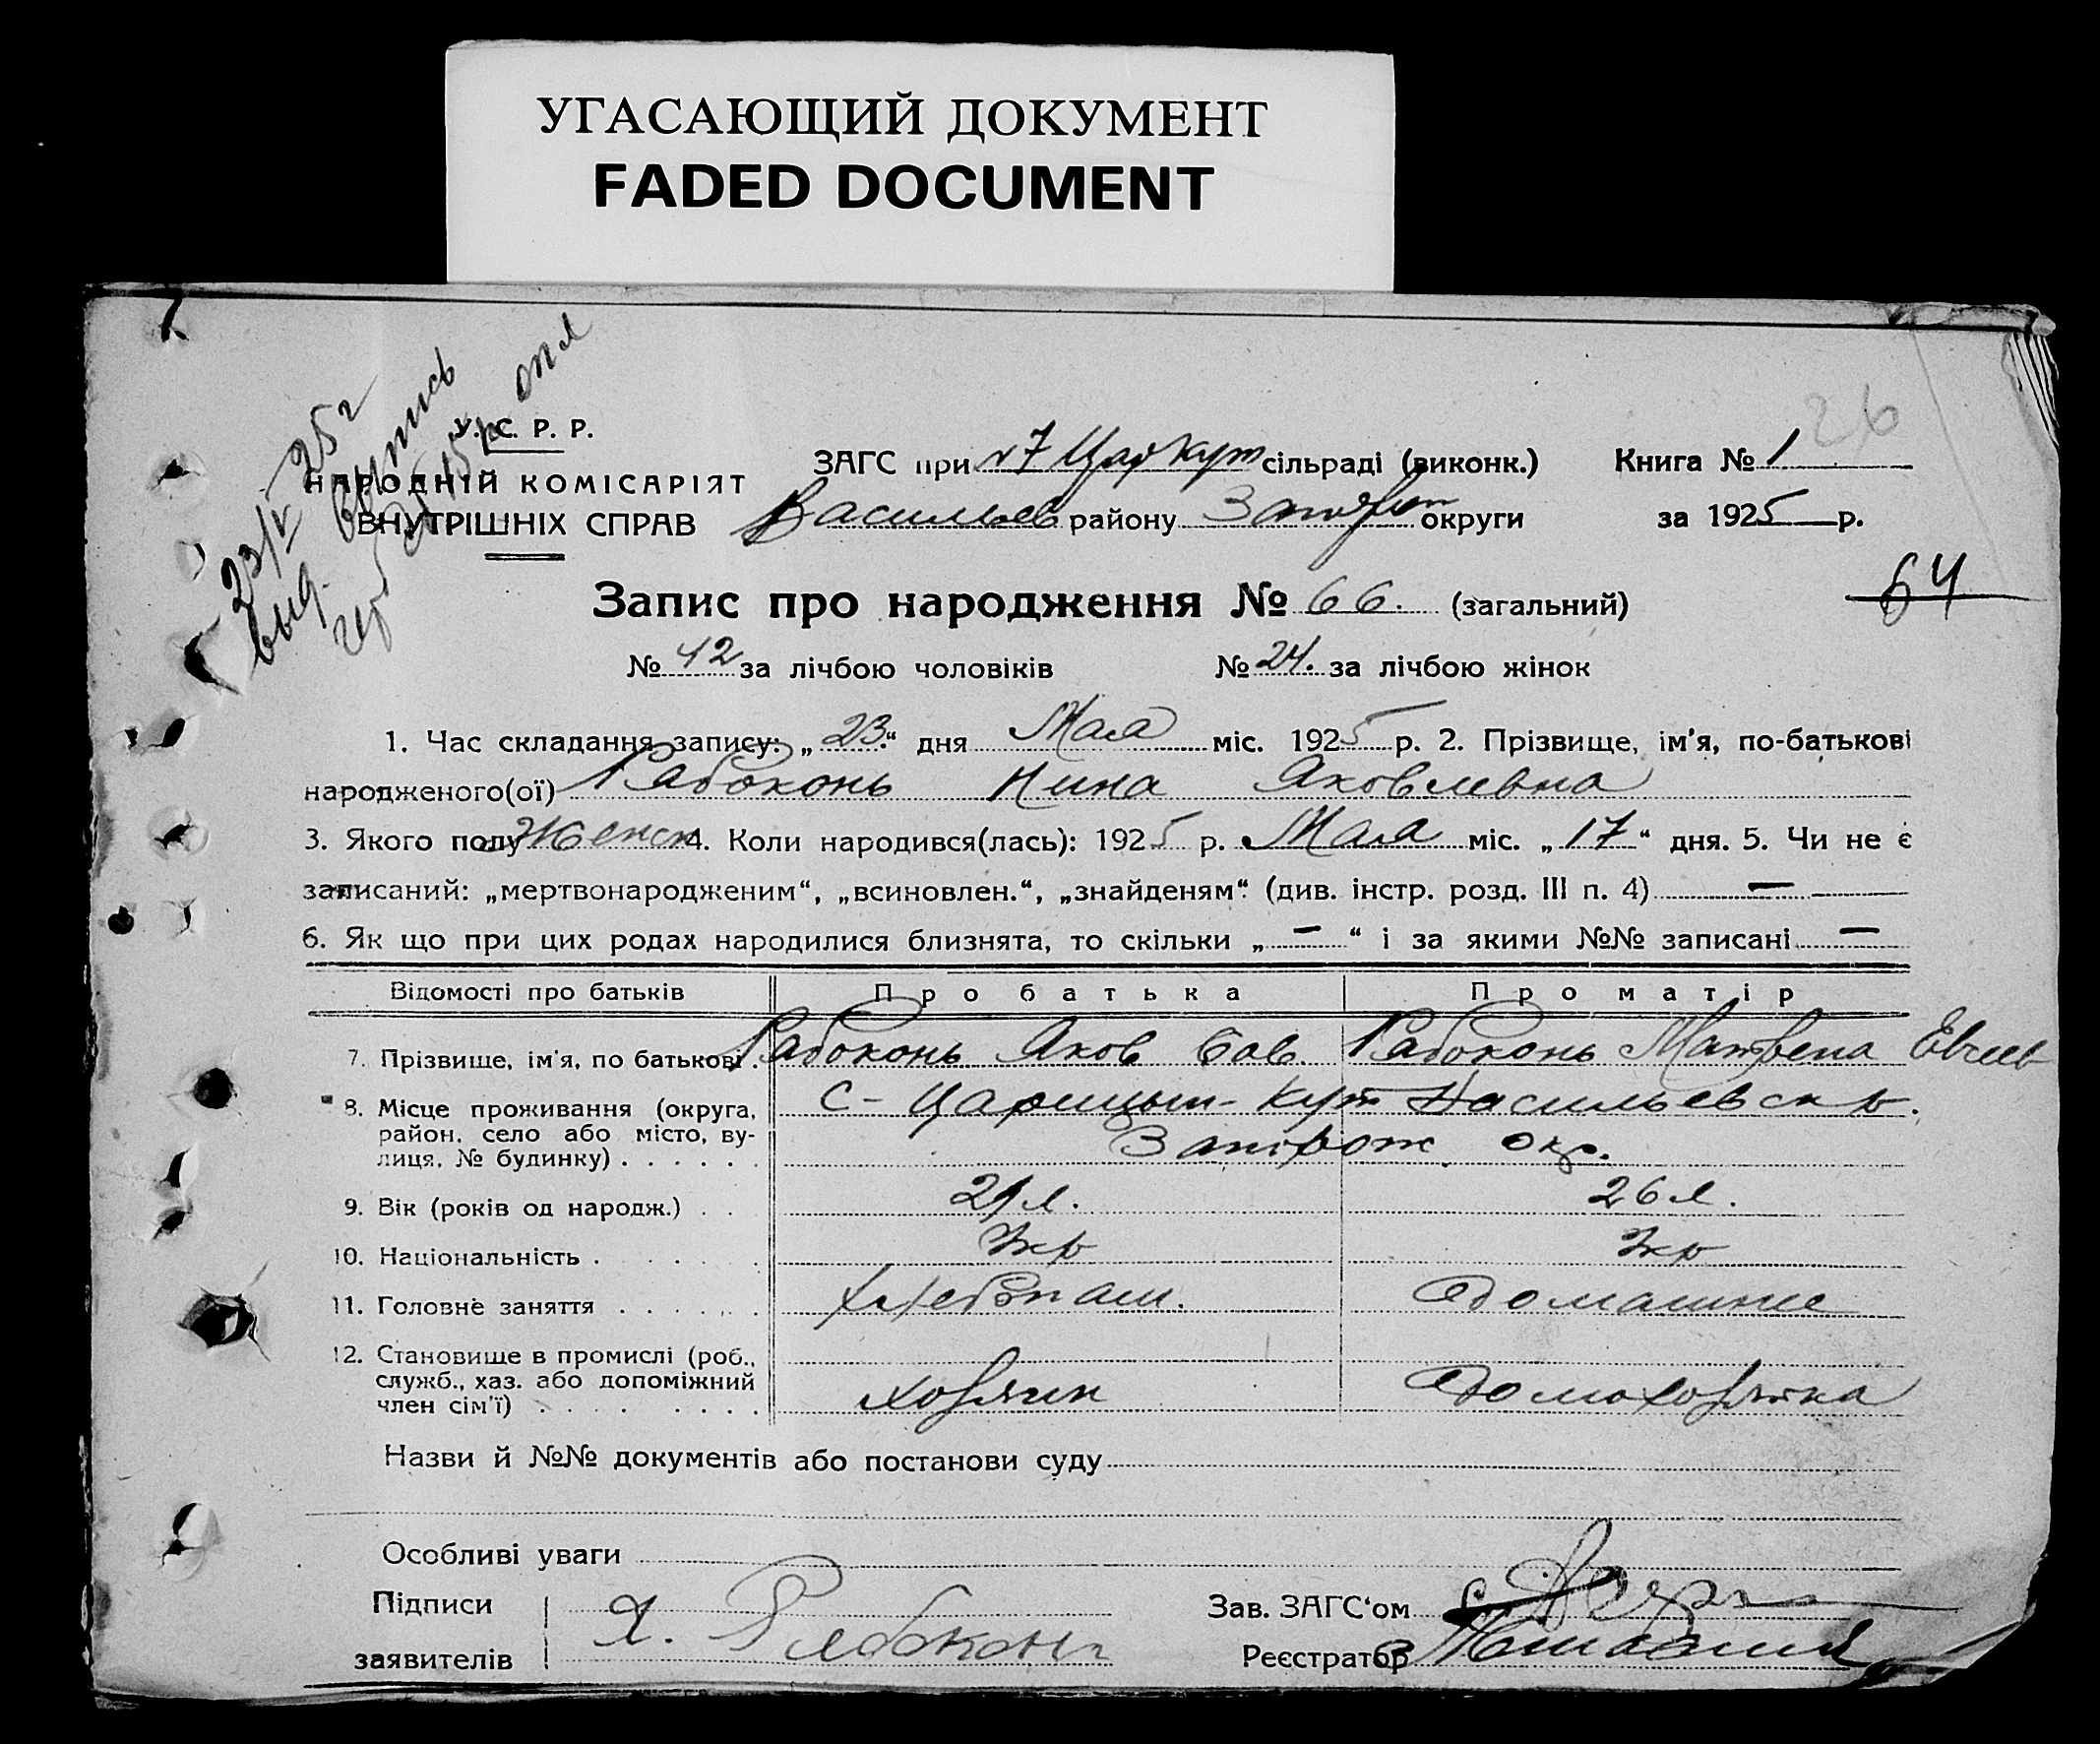 УГАСАЮЩИЙ ДОКУМЕНТ
FADED DOCUMENT
26
23/V 25 г
выд. выпись
У. С. Р. Р.
НАРОДНІЙ КОМІСАРІЯТ
ВНУТРІШНІХ СПРАВ
ЗАГС при Цар Кут сільраді (виконк.) Книга № 1
Васильев району округи за 1925 р.
64
Запис про народження № 66. (загальний)
№ 42 за лічбою чоловіків № 24. за лічбою жінок
1. Час складання запису: „23“ дня Мая міс. 1925 р. 2. Прізвище, ім'я, по-батькові
народженого(ої) Рабоконь Нина Яковлевна
3. Якого полу Женск 4. Коли народився(лась): 1925 р. Мая міс. „17“ дня. 5. Чи не є
записаний: „мертвонародженим“, „всиновлен.“, „знайденям“ (див. інстр. розд. III п. 4) —
6. Як що при цих родах народилися близнята, то скільки „—“ і за якими №№ записані —
Відомості про батьків Про батька Про матір
7. Прізвище, ім'я, по батькові . Рабоконь Яков Сав. Рабоконь Матрена
8. Місце проживання (округа, с- Царицын- Кут Васильевск р.
район, село або місто, ву-
лиця, № будинку) . . . . . . Запорож окр.
9. Вік (років од народж.) . . 21 л. 26 л.
10. Національність . . . . . . Укр Укр
11. Головне заняття . . . . . . Хлебопаш. домашние
12. Становище в промислі (роб.,
служб., хаз. або допоміжний
член сім'ї) . . . . . . хозяин домохозяйка
Назви й №№ документів або постанови суду
Особливі уваги
Підписи Зав. ЗАГС'ом
Я. Рабоконь
заявителів Реєстратор